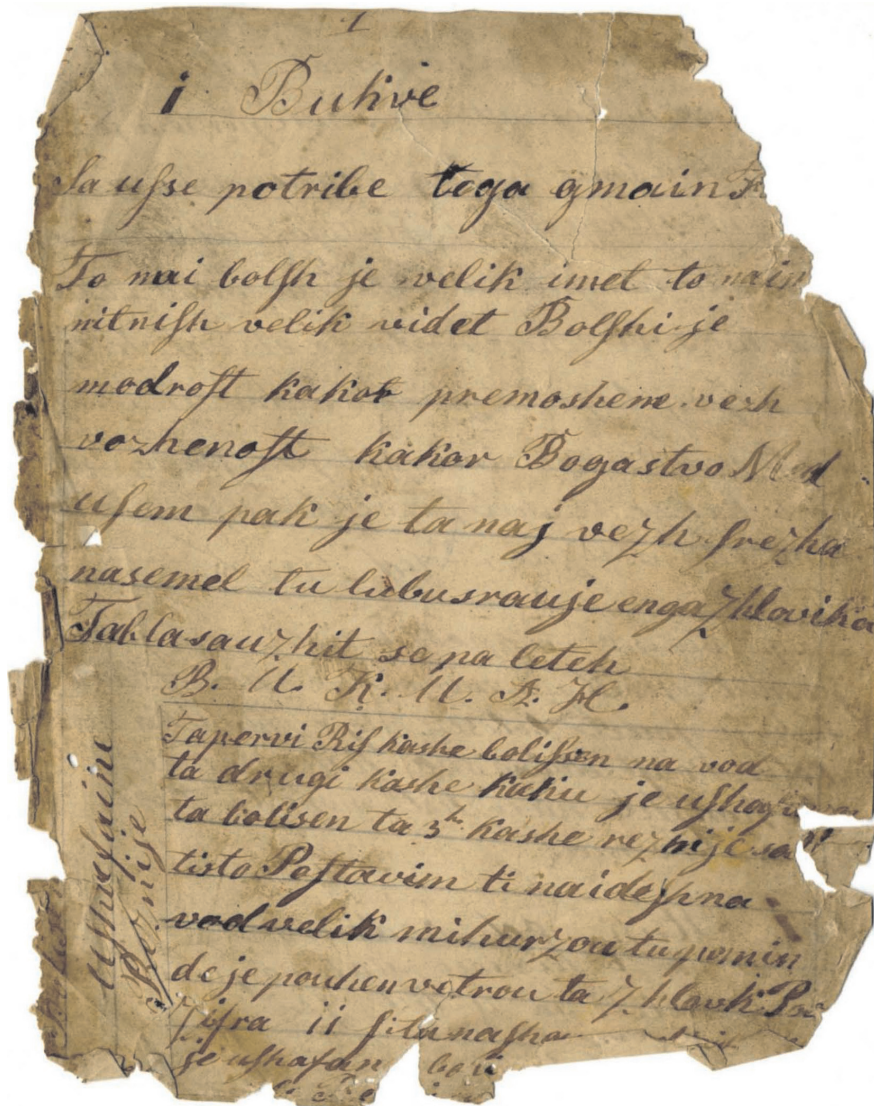 1
i Bukve
Sa uſse potribe toga gmain
To nai bolſh je velik imet to nain
nitniſh velik videt Bolſhi je
modroſt kakor premoshene vezh
vozhenoſt kakor Bogastvo Med
uſem pak je ta naj vezh ſrezha
nasemel tu lubusrauje enga zhlovika
Tabla sauzhit se na leteh
B. U. K. U. A. H.
Ta pervi Riſ kashe boliſsen na vod
ta drugi kashe kaku je uſhag
ta bolisen ta 3h kashe reznije sa
tisto Poſtavim ti naideſh na
vod velik mihurzou tu pomin
de je pouhen vetrou ta zhlovk
Zifra ii ſila naſha
je uſhafan
uſhafaine
Reznije